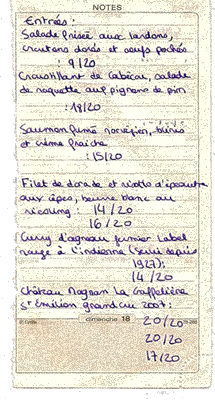 NOTES
Entrées :
Salade frisée aux lardons,
croutons dorés et oeufs pochés
: 9/20
Croustillant de Cabécou, salade
de roquette aux pignons de pin
: 18/20
Saumon fumé norvégien, blinis
et crème fraîche
: 15/20
Filet de dorade et risotto d'épeautre
aux cèpes, beurre blanc au
riesling : 14/20
16/20
Curry d'agneau fermier Label
rouge à l'indienne (servi depuis
1927) :
14/20
Château Magnan La Gaffelière
St Emilion grand cru 2007 :
dimanche 18
20/20
20/20
17/20